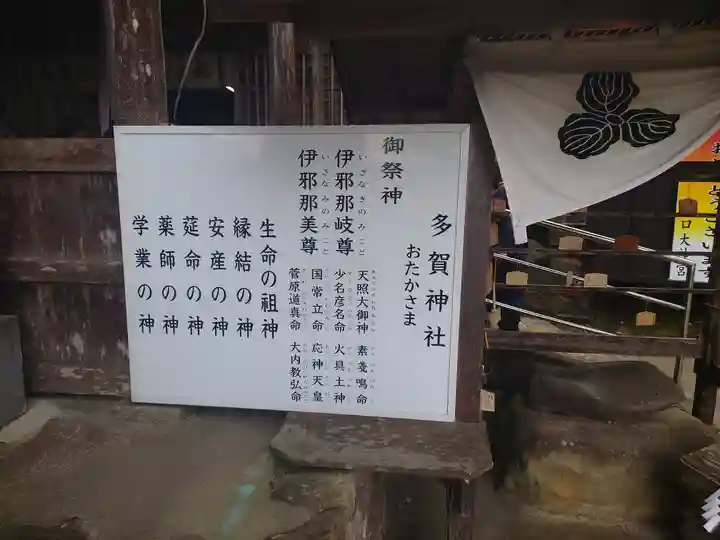 多賀神社
おたかさま
御祭神
いざなぎのみこと
伊邪那岐尊
いざなみのみこと
伊邪那美尊
天照大御神 素戔鳴命
少名彦名命 火具土神
国常立命 応神天皇
菅原道真命 大内教弘命
生命の祖神
縁結の神
安産の神
莚命の神
薬師の神
学業の神